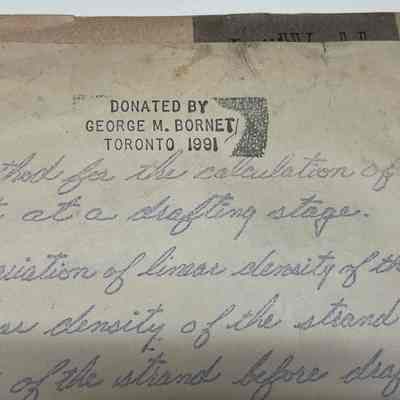 DONATED BY
GEORGE M. BORNET
TORONTO, 1991
thod for the calculation of
at a drafting stage.
viation of linear density of th
density of the strand
of the strand before draf